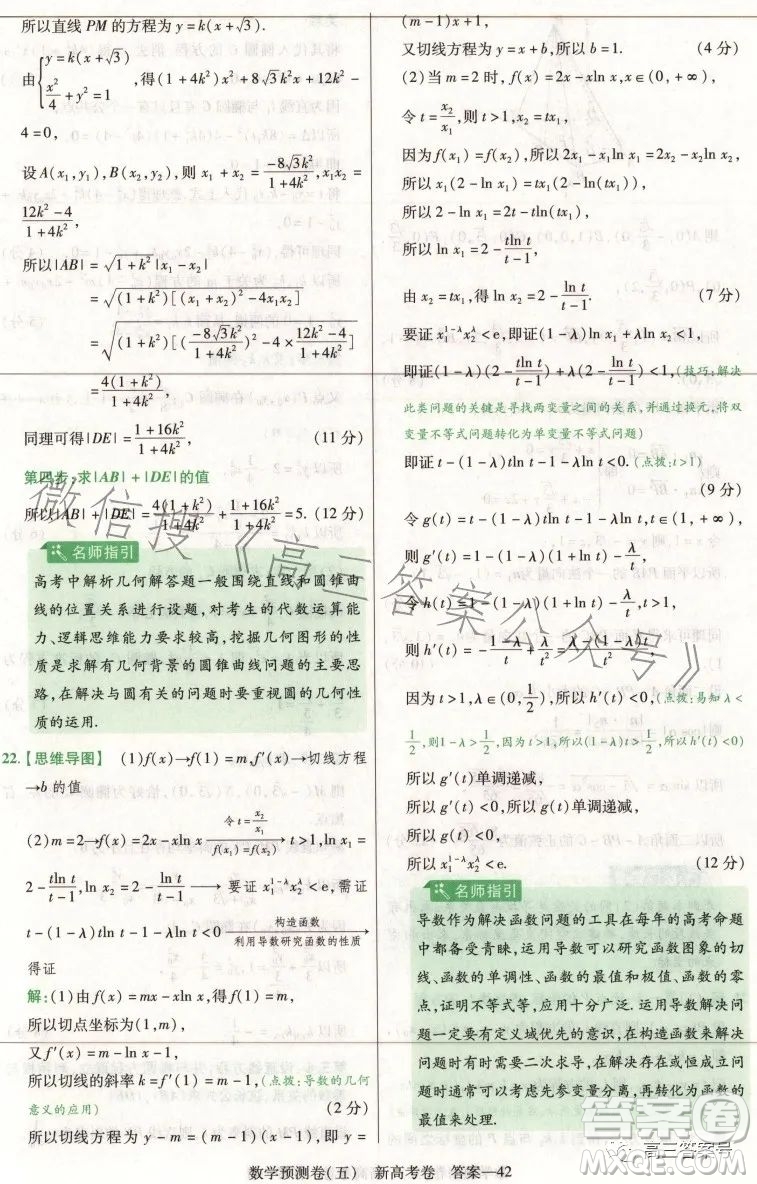 所以直线 PM 的方程为 y=k(x+√3).
由{y=k(x+√3) x²/4+y²=1 ,得(1+4k²)x²+8√3k²x+12k²-
4=0,
设 A(x₁,y₁),B(x₂,y₂),则 x₁+x₂=(-8√3k²)/(1+4k²),x₁x₂=
(12k²-4)/(1+4k²),
所以|AB|=√(1+k²)|x₁-x₂|
=√((1+k²)[(x₁+x₂)²-4x₁x₂])
=√((1+k²)[((-8√3k²)/(1+4k²))²-4×(12k²-4)/(1+4k²)])
=4(1+k²)/(1+4k²),
同理可得|DE|=(1+16k²)/(1+4k²), (11 分)
第四步:求|AB|+|DE|的值
所以|AB|+|DE|=4(1+k²)/(1+4k²)+(1+16k²)/(1+4k²)=5. (12 分)
名师指引
高考中解析几何解答题一般围绕直线和圆锥曲
线的位置关系进行设题,对考生的代数运算能
力、逻辑思维能力要求较高,挖掘几何图形的性
质是求解有几何背景的圆锥曲线问题的主要思
路,在解决与圆有关的问题时要重视圆的几何性
质的运用.
22.【思维导图】 (1)f(x)→f(1)=m,f′(x)→切线方程
→b 的值
(2)m=2→f(x)=2x-xln x 令t=x₂/x₁ f(x₁)=f(x₂) → t>1,ln x₁=
2-tln t/(t-1),ln x₂=2-ln t/(t-1)→ 要证 x₁^(1-λ)x₂^λ<e,需证
t-(1-λ)tln t-1-λln t<0 构造函数 利用导数研究函数的性质 →
得证
解:(1)由 f(x)=mx-xln x,得 f(1)=m,
所以切点坐标为(1,m),
又 f′(x)=m-ln x-1,
所以切线的斜率 k=f′(1)=m-1,(点拨:导数的几何
意义的应用) (2 分)
所以切线方程为 y-m=(m-1)(x-1),即 y=
(m-1)x+1,
又切线方程为 y=x+b,所以 b=1. (4 分)
(2)当 m=2 时,f(x)=2x-xln x,x∈(0,+∞),
令 t=x₂/x₁,则 t>1,x₂=tx₁,
因为 f(x₁)=f(x₂),所以 2x₁-x₁ln x₁=2x₂-x₂ln x₂,
所以 x₁(2-ln x₁)=tx₁(2-ln tx₁),
所以 2-ln x₁=2t-tln(tx₁),
所以 ln x₁=2-tln t/(t-1).
由 x₂=tx₁,得 ln x₂=2-ln t/(t-1). (7 分)
要证 x₁^(1-λ)x₂^λ<e,即证(1-λ)ln x₁+λln x₂<1,
即证(1-λ)(2-tln t/(t-1))+λ(2-ln t/(t-1))<1,(技巧:解决
此类问题的关键是寻找两变量之间的关系,并通过换元,将双
变量不等式问题转化为单变量不等式问题)
即证 t-(1-λ)tln t-1-λln t<0.(点拨:t>1)
(9 分)
令 g(t)=t-(1-λ)tln t-1-λln t,t>1,
则 g′(t)=1-(1-λ)(1+ln t)-λ/t,
令 h(t)=1-(1-λ)(1+ln t)-λ/t,t>1,
则 h′(t)=-(1-λ)/t+λ/t²=(λ-(1-λ)t)/t²,
因为 t>1,λ∈(0,1/2),所以 h′(t)<0,(点拨:易知 λ<
1/2,则1-λ>1/2,因为t>1,所以(1-λ)t>1/2,所以h′(t)<0)
所以 g′(t)单调递减,
所以 g′(t)<0,所以 g(t)单调递减,
所以 g(t)<0,
所以 x₁^(1-λ)x₂^λ<e. (12 分)
名师指引
导数作为解决函数问题的工具在每年的高考命题
中都备受青睐,运用导数可以研究函数图象的切
线、函数的单调性、函数的最值和极值、函数的零
点,证明不等式等,应用十分广泛.运用导数解决问
题一定要有定义域优先的意识,在构造函数来解决
问题时有时要二次求导,在解决存在或恒成立问
题时通常可以考虑先参变量分离,再转化为函数的
最值来处理.
微信搜《高三答案公众号》
答案圈
高三答案号
数学预测卷(五) 新高考卷 答案—42